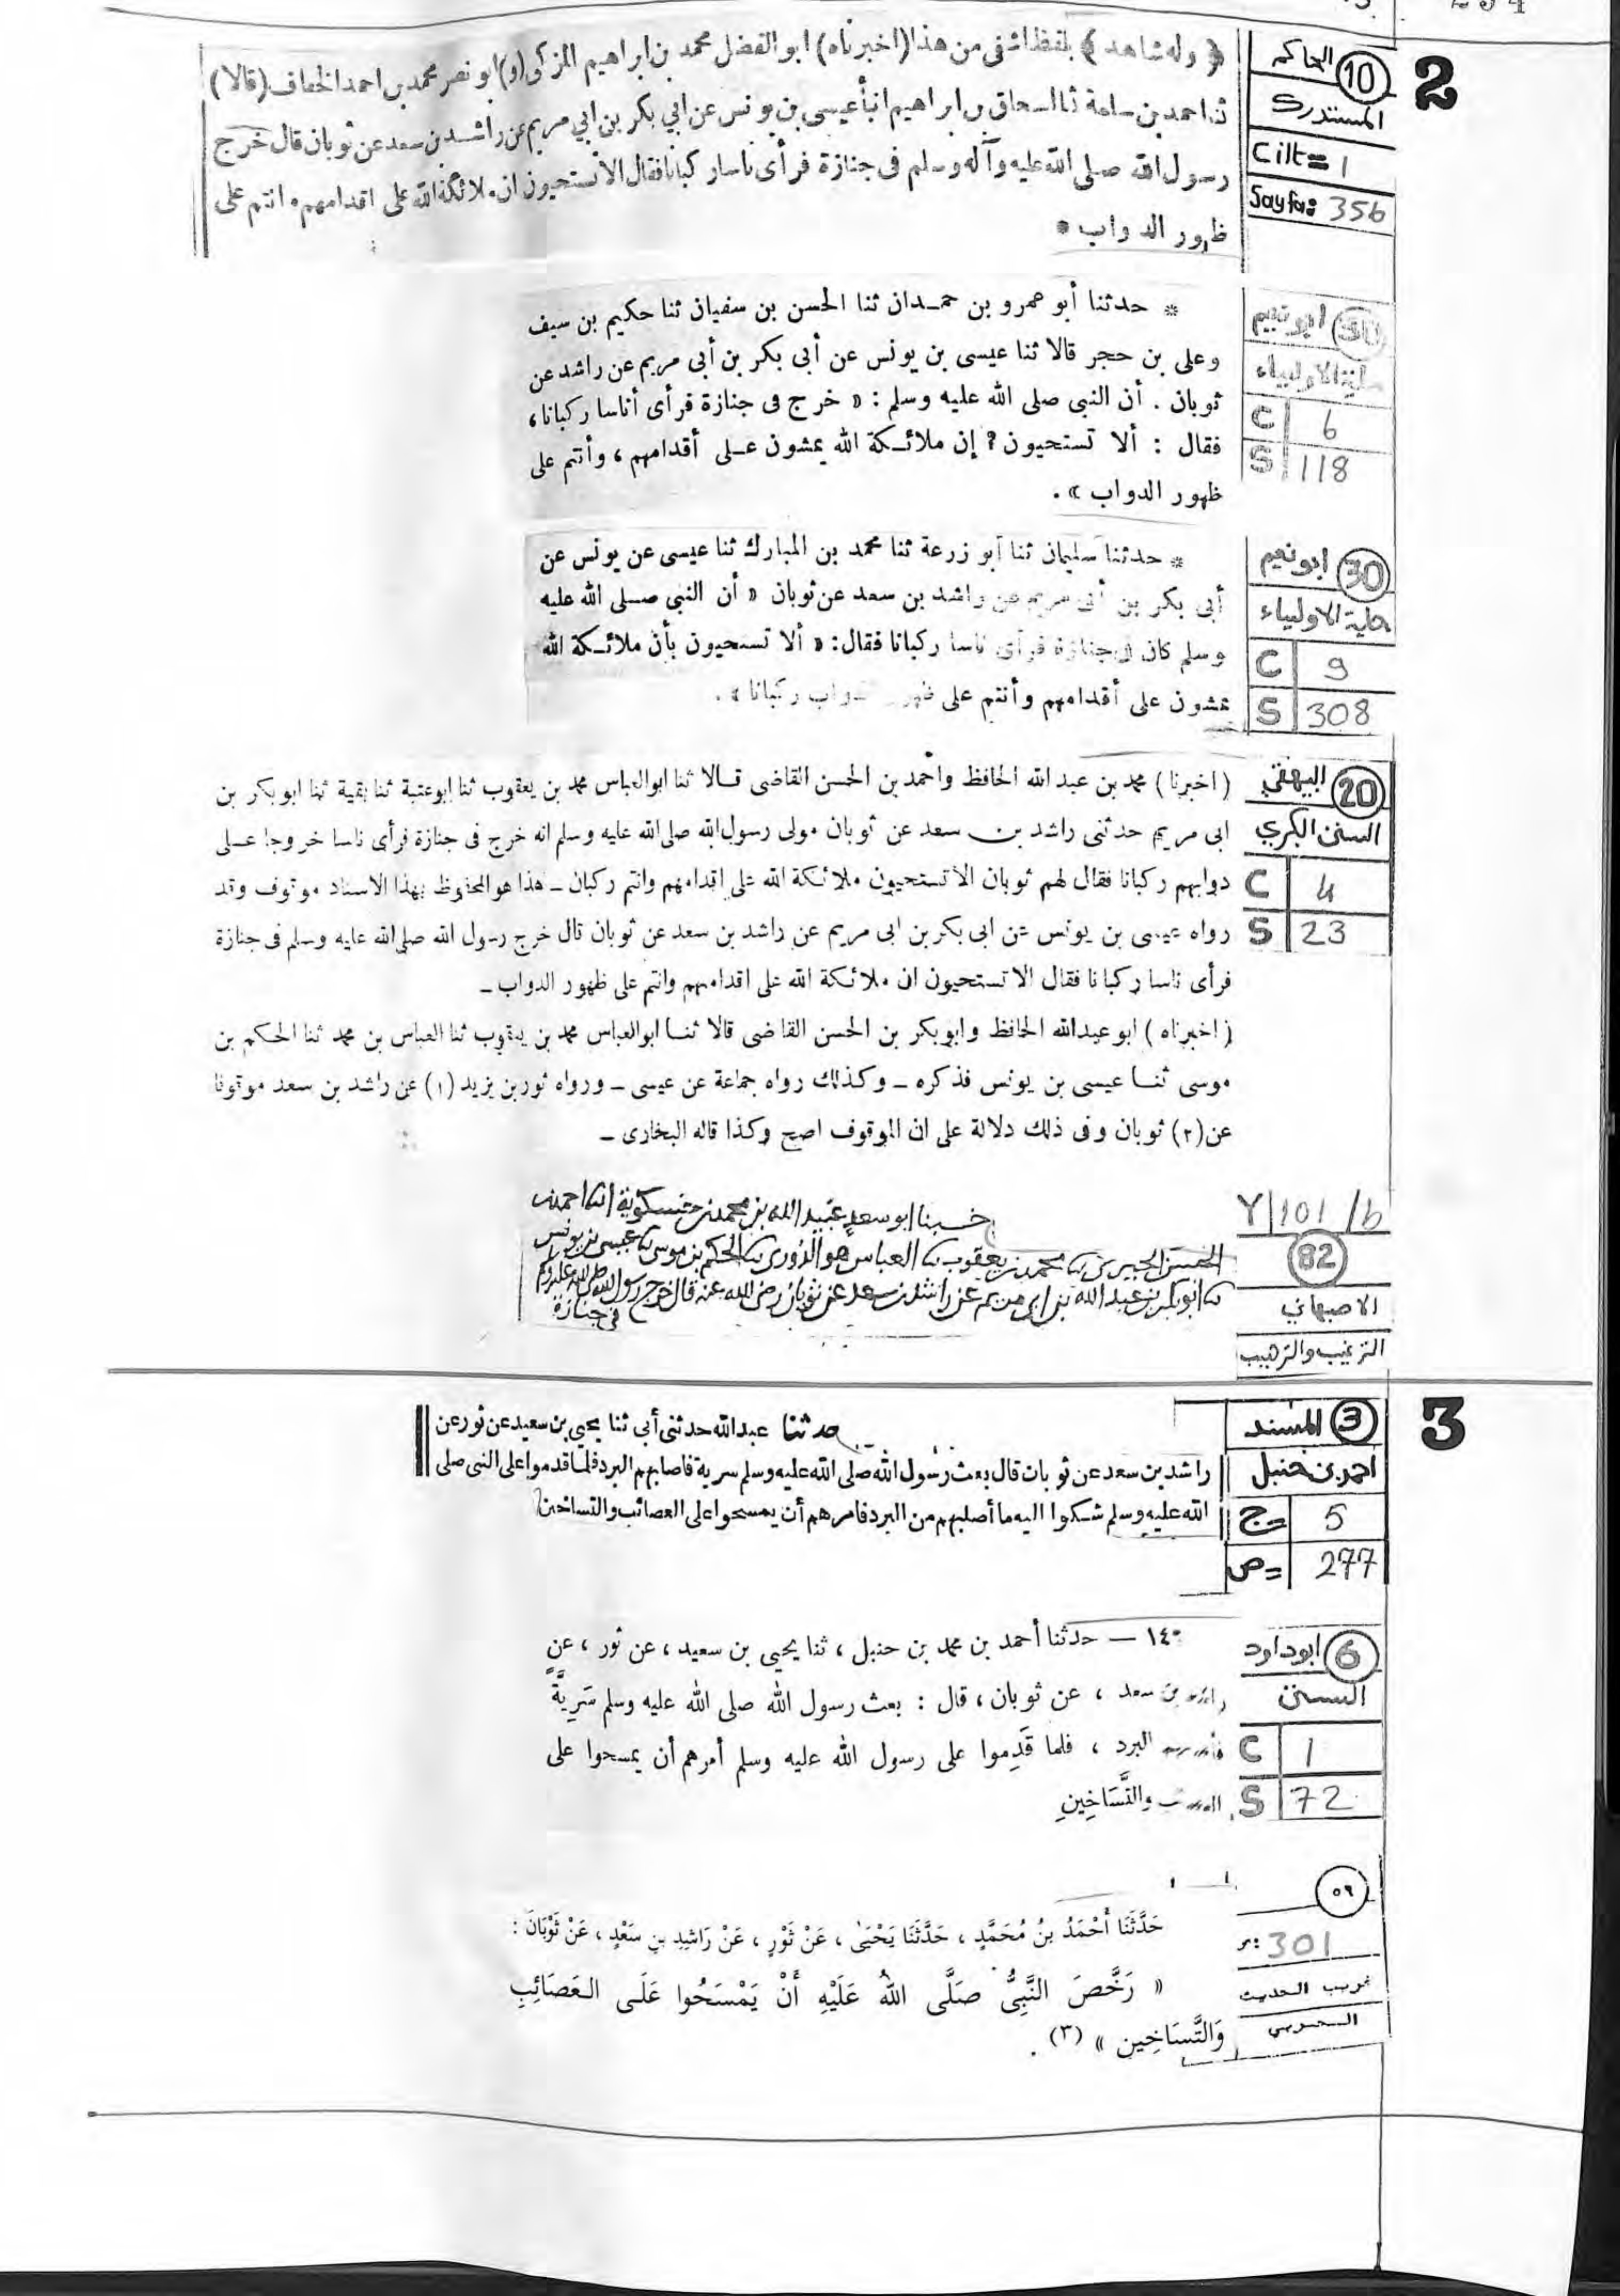 2
10 الحاكم
المستدرك
Cilt= 1
Sayfa: 356
﴿ وله شاهد ﴾ بلفظ اشفى من هذا (اخبرناه) ابو الفضل محمد بن ابراهيم المزكى (و) ابو نصر محمد بن احمد الخفاف (قالا)
ثنا احمد بن سلمة ثنا اسحاق بن ابراهيم انبأ عيسى بن يونس عن ابي بكر بن ابي مريم عن راشد بن سعد عن ثوبان قال خرج
رسول الله صلى الله عليه وآله وسلم فى جنازة فرأى ناسا ركبانا فقال الا تستحيون ان ملائكة الله على اقدامهم وانتم على
ظهور الدواب *
30 ابو نعيم
حلية الاولياء
C 6
S 118
* حدثنا أبو عمرو بن حمدان ثنا الحسن بن سفيان ثنا حكيم بن سيف
وعلى بن حجر قالا ثنا عيسى بن يونس عن أبى بكر بن أبى مريم عن راشد عن
ثوبان . أن النبى صلى الله عليه وسلم : « خرج فى جنازة فرأى أناسا ركبانا ،
فقال : ألا تستحيون ؟ إن ملائكة الله يمشون على أقدامهم ، وأنتم على
ظهور الدواب » .
30 ابو نعيم
حلية الاولياء
C 9
S 308
* حدثنا سليمان ثنا أبو زرعة ثنا محمد بن المبارك ثنا عيسى عن يونس عن
أبى بكر بن أبى مريم عن راشد بن سعد عن ثوبان « أن النبى صلى الله عليه
وسلم كان فى جنازة فرأى ناسا ركبانا فقال : « ألا تستحيون بأن ملائكة الله
يمشون على أقدامهم وأنتم على ظهور الدواب ركبانا » .
20 البيهقي
السنن الكبري
C 4
S 23
(اخبرنا) محمد بن عبد الله الحافظ واحمد بن الحسن القاضى قالا ثنا ابو العباس محمد بن يعقوب ثنا ابو عتبة ثنا بقية ثنا ابو بكر بن
ابى مريم حدثنى راشد بن سعد عن ثوبان مولى رسول الله صلى الله عليه وسلم انه خرج فى جنازة فرأى ناسا خروجا على
دوابهم ركبانا فقال لهم ثوبان الا تستحيون ملائكة الله على اقدامهم وانتم ركبان ـ هذا هو المحفوظ بهذا الاسناد موقوف وقد
رواه عيسى بن يونس عن ابى بكر بن ابى مريم عن راشد بن سعد عن ثوبان قال خرج رسول الله صلى الله عليه وسلم فى جنازة
فرأى ناسا ركبانا فقال الا تستحيون ان ملائكة الله على اقدامهم وانتم على ظهور الدواب ـ
(اخبرناه) ابو عبد الله الحافظ وابو بكر بن الحسن القاضى قالا ثنا ابو العباس محمد بن يعقوب ثنا العباس بن محمد ثنا الحكم بن
موسى ثنا عيسى بن يونس فذكره ـ وكذلك رواه جماعة عن عيسى ـ ورواه ثور بن يزيد (١) عن راشد بن سعد موقوفا
عن (٢) ثوبان وفى ذلك دلالة على ان الموقوف اصح وكذا قاله البخارى ـ
Y/101/b
82
الاصبهاني
الترغيب والترهيب
ابو سعد عبيد الله بن محمد بن احمد بن
الحسن محمد بن يعقوب العباس هو الدوري الحكم بن موسى عيسى بن يونس
ابو بكر بن عبد الله بن ابي مريم عن راشد بن سعد عن ثوبان رضى الله عنه قال خرج رسول الله صلى الله عليه وسلم
في جنازة
3
3 المسند
احمد بن حنبل
ج= 5
ص= 277
حدثنا عبد الله حدثنى أبى ثنا يحيى بن سعيد عن ثور عن
راشد بن سعد عن ثوبان قال بعث رسول الله صلى الله عليه وسلم سرية فاصابهم البرد فلما قدموا على النبى صلى
الله عليه وسلم شكوا اليه ما أصابهم من البرد فامرهم أن يمسحوا على العصائب والتساخين
6 ابو داود
السنن
C 1
S 72
١٤٠ — حدثنا أحمد بن محمد بن حنبل ، ثنا يحيى بن سعيد ، عن ثور ، عن
راشد بن سعد ، عن ثوبان ، قال : بعث رسول الله صلى الله عليه وسلم سَرِيَّةً
البرد ، فلما قَدِموا على رسول الله عليه وسلم أمرهم أن يمسحوا على
والتَّسَاخِينِ
٥٩
301
غريب الحديث
حَدَّثَنَا أَحْمَدُ بنُ مُحَمَّدٍ ، حَدَّثَنَا يَحْيَىٰ ، عَنْ ثَوْرٍ ، عَنْ رَاشِدِ بنِ سَعْدٍ ، عَنْ ثَوْبَانَ :
« رَخَّصَ النَّبِىُّ صَلَّى اللهُ عَلَيْهِ أَنْ يَمْسَحُوا عَلَى العَصَائِبِ
وَالتَّسَاخِين » (٣) .